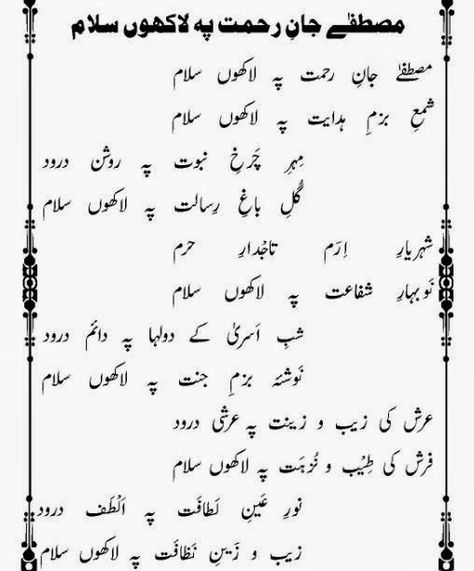 مصطفٰے جانِ رحمت پہ لاکھوں سلام
مصطفٰے جانِ رحمت پہ لاکھوں سلام
شمعِ بزمِ ہدایت پہ لاکھوں سلام
مِہرِ چَرخِ نبوت پہ روشن درود
گُلِ باغِ رِسالت پہ لاکھوں سلام
شہریارِ اِرَم تاجْدارِ حرم
نَوبہارِ شفاعت پہ لاکھوں سلام
شبِ اَسریٰ کے دولہا پہ دائم درود
نَوشۂ بزمِ جنت پہ لاکھوں سلام
عرش کی زیب و زینت پہ عرشی درود
فرش کی طِیْب و نُزہَت پہ لاکھوں سلام
نورِ عَینِ لَطافَت پہ اَلْطَف درود
زیب و زَینِ نَظافَت پہ لاکھوں سلام